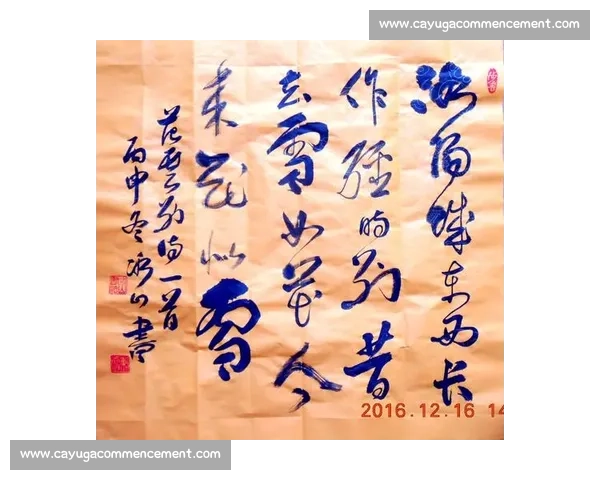 www.cayugacommencement.com
洛阳城东西长
作經时别昔
去雪如花今
来花似雪
范云别诗一首
丙申冬 書
2016.12.16 14
www.cayugacommencement.com